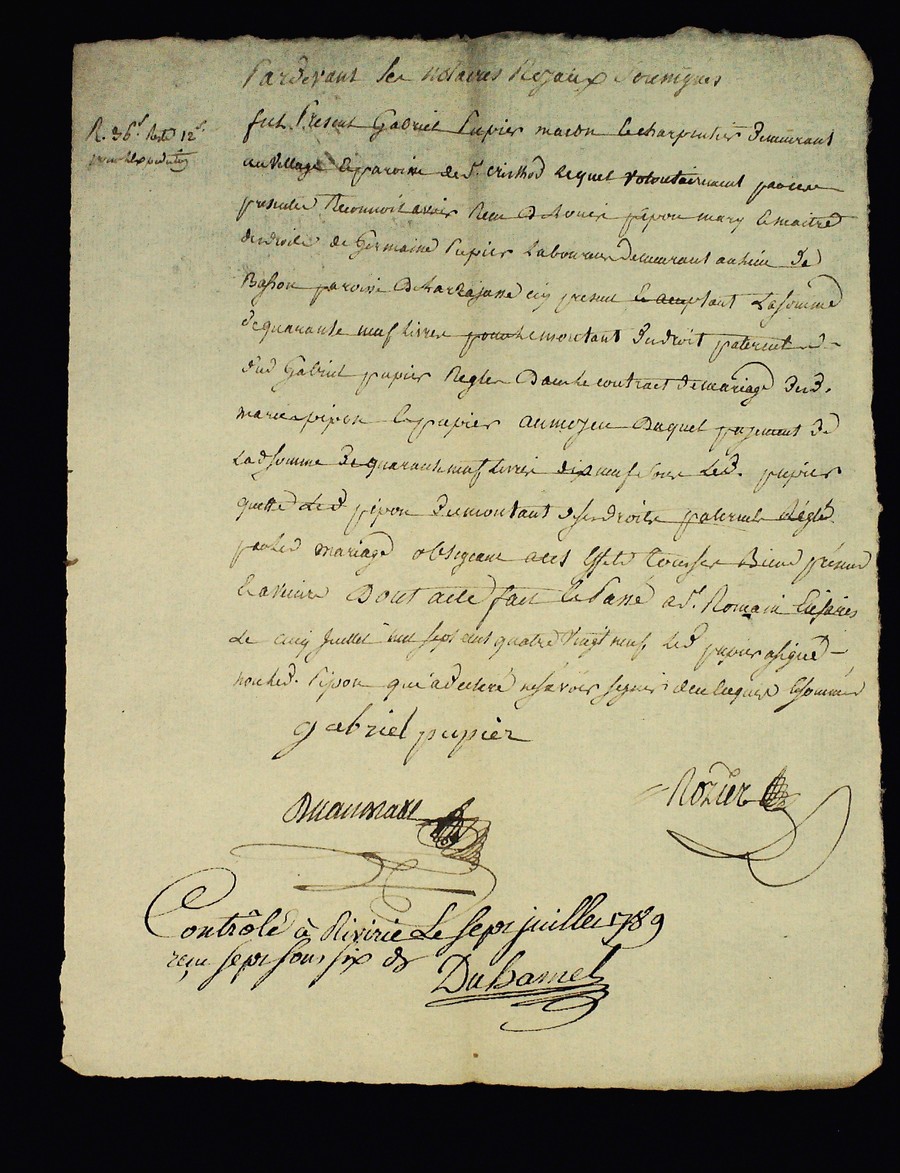 Pardevant Les notaires Royaux Soussignes
R. 36s Reste 12s
pour lexpedition
fut Present Gabriel Pupier macon & charpentier Demeurant
au village & paroisse de St. Lequel volontairement par ces
presentes Reconnoit avoir Recu D pipon mary & maitre
des droits de Germaine Pupier Laboureur Demeurant au lieu de
Basson paroisse De Larajasse icy present & aceptant La somme
De quarante neuf Livres pour le montant Du droit paternel
dud Gabriel pupier Regles Dans le contract de mariage Desd.
mariés pipon & pupier au moyen Duquel payement De
Lad somme De quarante neuf Livres dix neuf Sous Led. pupier
quitte Led pipon Du montant de ses droits paternels Réglé
par led mariage obligeant a ces Effets tous ses Biens présens
& avenirs Dont acte fait & Passé a St. Romain En Jares
Le cinq Juillet mil sept cent quatre vingt neuf, Led pupier a signé
non led. Pipon qui a déclaré ne savoir signer de ce Enquis & sommé
gabriel pupier
Rozier
Contrôlé à Riverie Le sept juillet 1789
reçu sept sous six ds
Duhamel